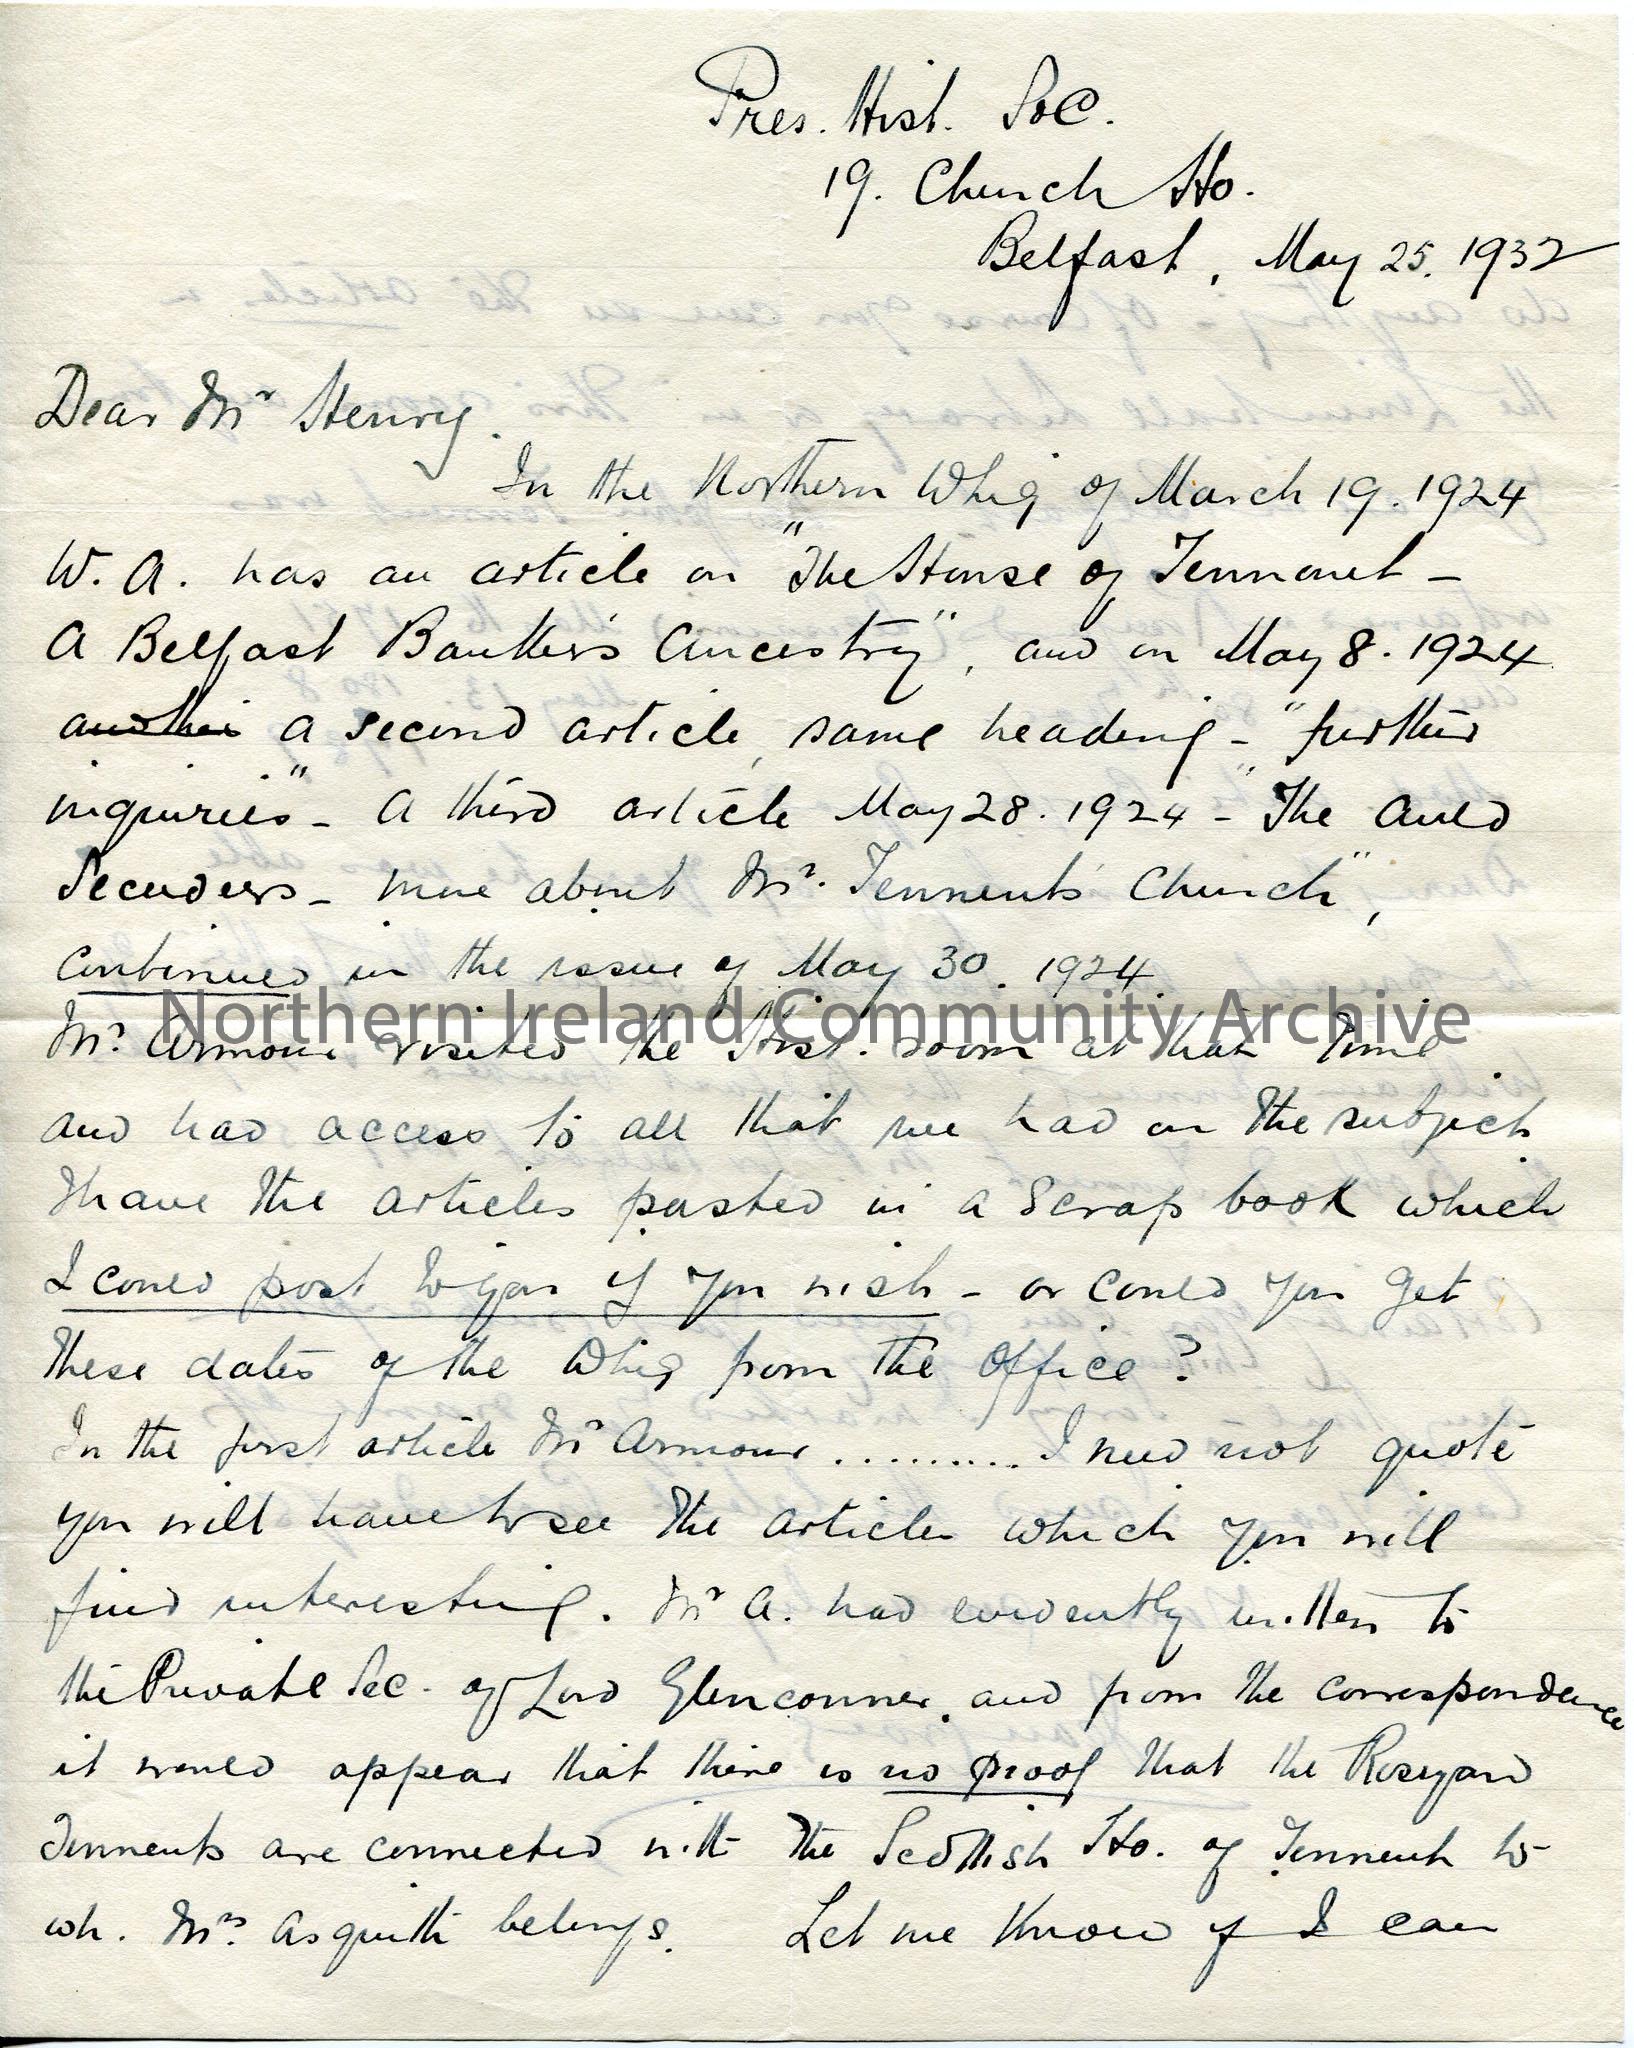 Pres. Hist. Soc.
19. Church Ho.
Belfast, May 25. 1932
Dear Mr Henry.
In the Northern Whig of March 19. 1924
W. A. has an article on "The House of Tennent –
A Belfast Banker's Ancestry", and on May 8. 1924
another a second article, same heading – "further
inquiries" – A third article May 28. 1924 – "The Auld
Seceders – more about Mr. Tennent's Church",
continued in the issue of May 30. 1924
Northern Ireland Community Archive
Mr. Armour visited the Hist. room at that time
and had access to all that we had on the subject
I have the articles pasted in a Scrap book which
I could post to you if you wish – or could you get
these dates of the Whig from the office?
In the first article Mr Armour .......... I need not quote
you will have to see the articles which you will
find interesting. Mr A. had evidently written to
the Private Sec. of Lord Glenconner, and from the correspondence
it would appear that there is no proof that the Roseyard
Tennents are connected with the Scottish Ho. of Tennent to
wh. Mrs. Asquith belongs. Let me know if I can